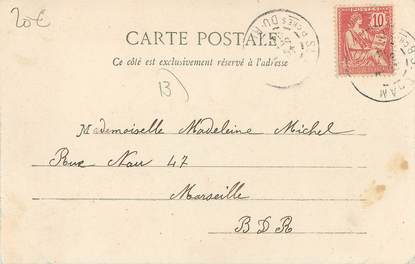 20€
CARTE POSTALE
Ce côté est exclusivement réservé à l'adresse
13
POSTES
10
Mademoiselle Madeleine Michel
Rue Noir 47
Marseille
B D R